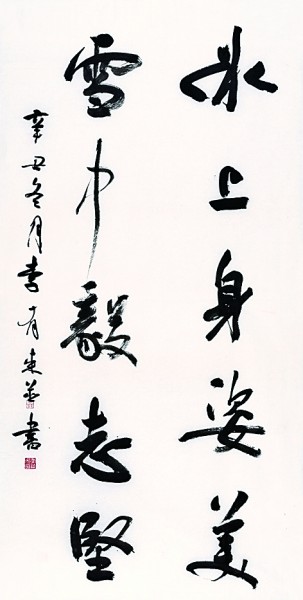 冰上身姿美
雪中毅志坚
辛丑冬月李有来并书